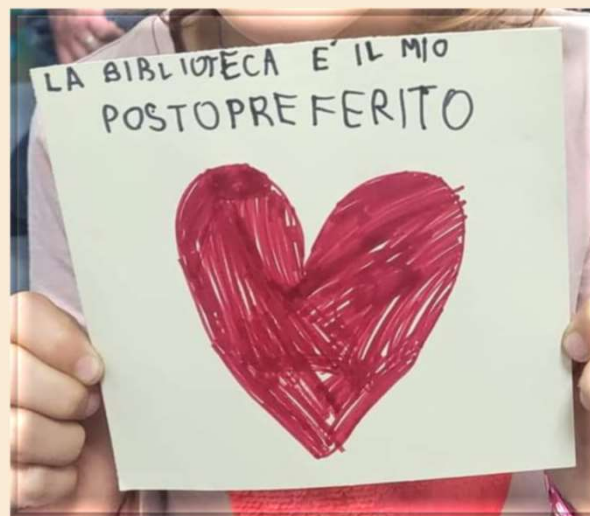 LA BIBLIOTECA E' IL MIO
POSTOPREFERITO